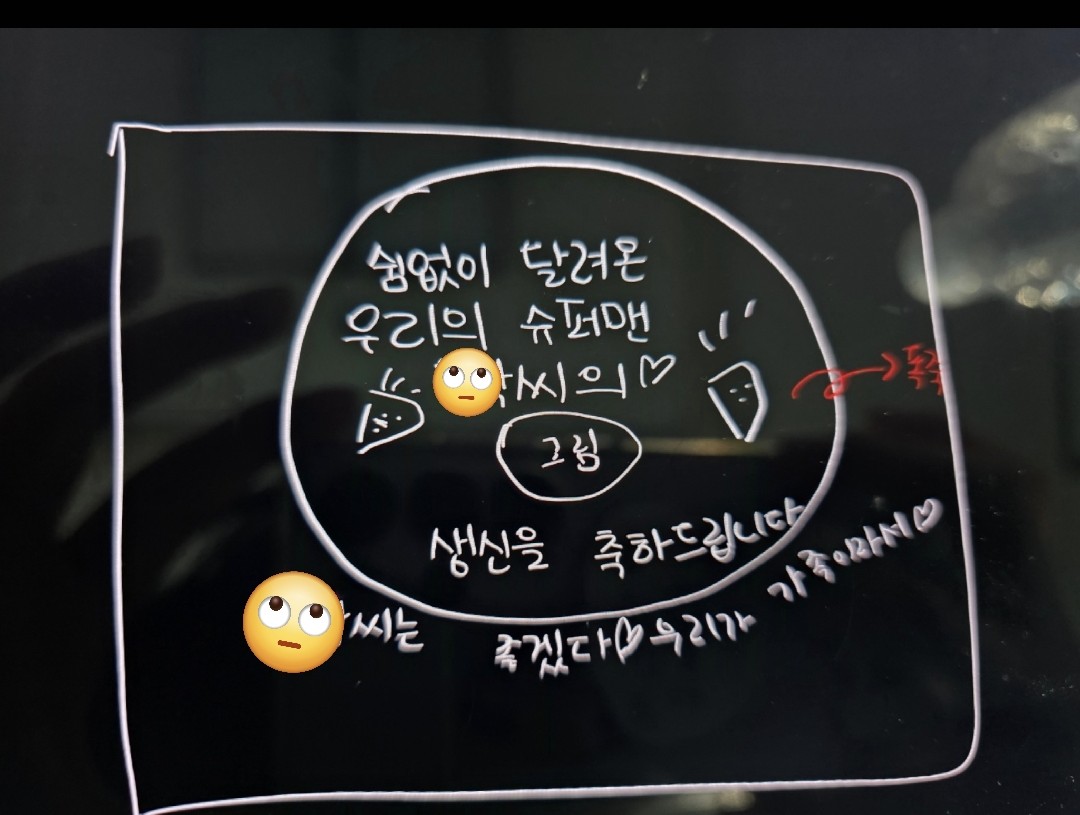 쉼없이 달려온
우리의 슈퍼맨
씨의♡
그림
생신을 축하드립니다
씨는 좋겠다♡ 우리가 가족이라서♡